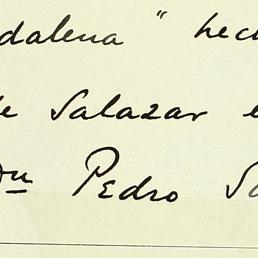 dalena" hec
le Salazar e
Dn Pedro Sa